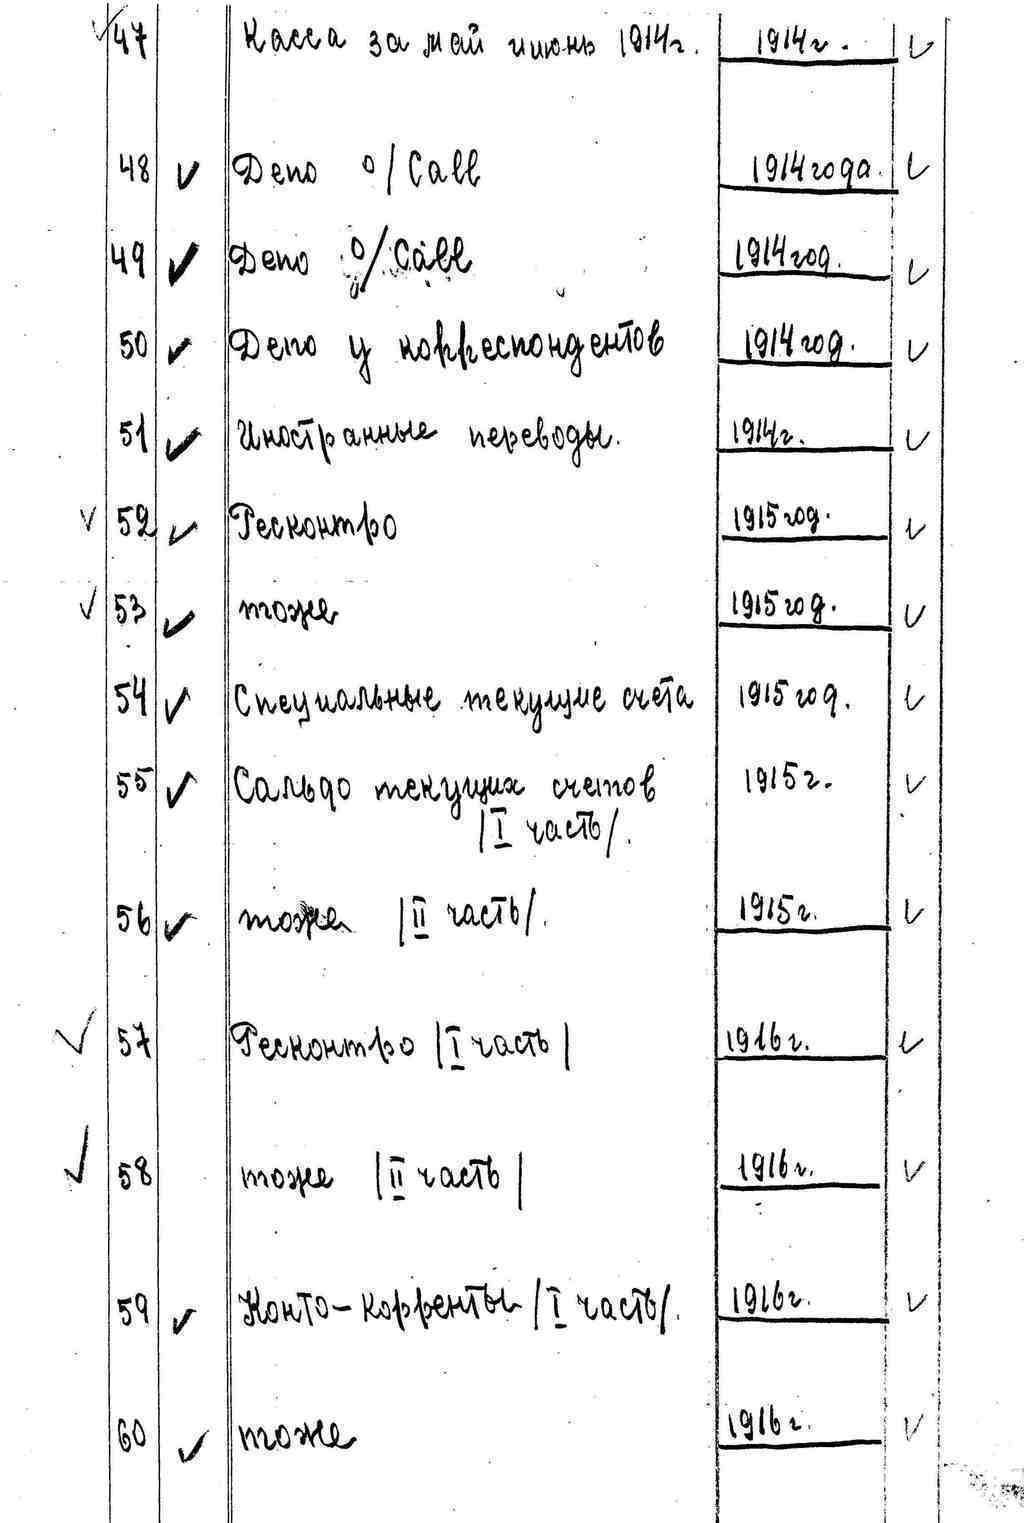 47 Касса за май июнь 1914г. 1914г.
48 Депо о/Call 1914года.
49 Депо о/Call 1914год.
50 Депо у корреспондентов 1914год.
51 Иностранные переводы. 1914г.
52 Ресконтро 1915год.
53 тоже 1915год.
54 Специальные текущие счета 1915год.
55 Сальдо текущих счетов 1915г.
/I часть/.
56 тоже /II часть/. 1915г.
57 Ресконтро /I часть/ 1916г.
58 тоже /II часть/ 1916г.
59 Конто-корренты /I часть/. 1916г.
60 тоже 1916г.